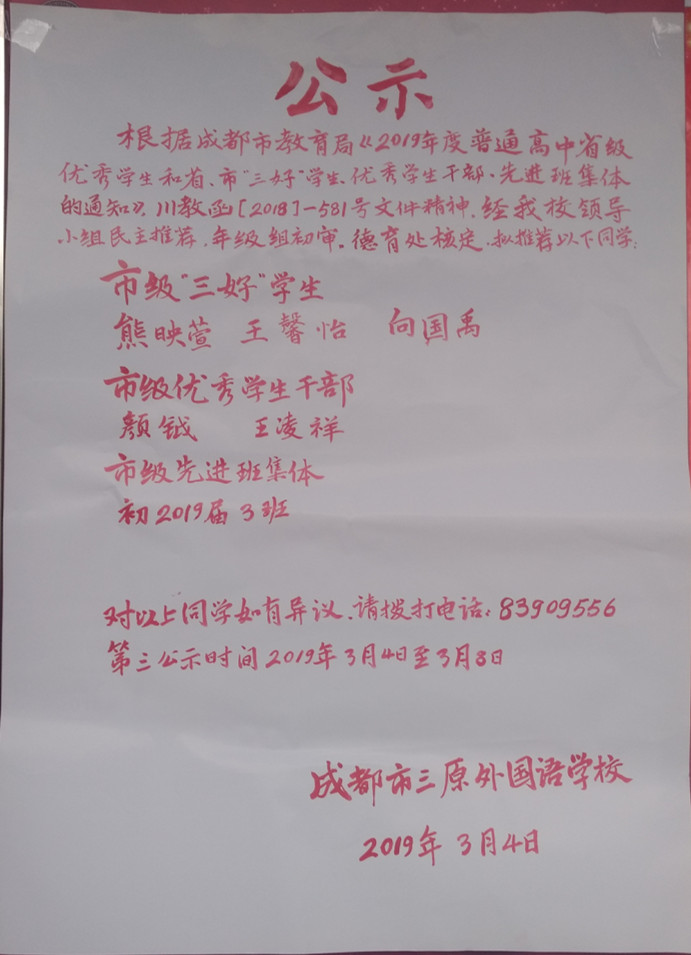 公示
根据成都市教育局《2019年度普通高中省级
优秀学生和省、市"三好"学生、优秀学生干部、先进班集体
的通知》,川教函[2018]-581号文件精神,经我校领导
小组民主推荐,年级组初审,德育处核定,拟推荐以下同学:
市级"三好"学生
熊映萱 王馨怡 向国禹
市级优秀学生干部
颜钺 王凌祥
市级先进班集体
初2019届3班
对以上同学如有异议,请拨打电话:83909556
第三公示时间2019年3月4日至3月8日
成都市三原外国语学校
2019年3月4日